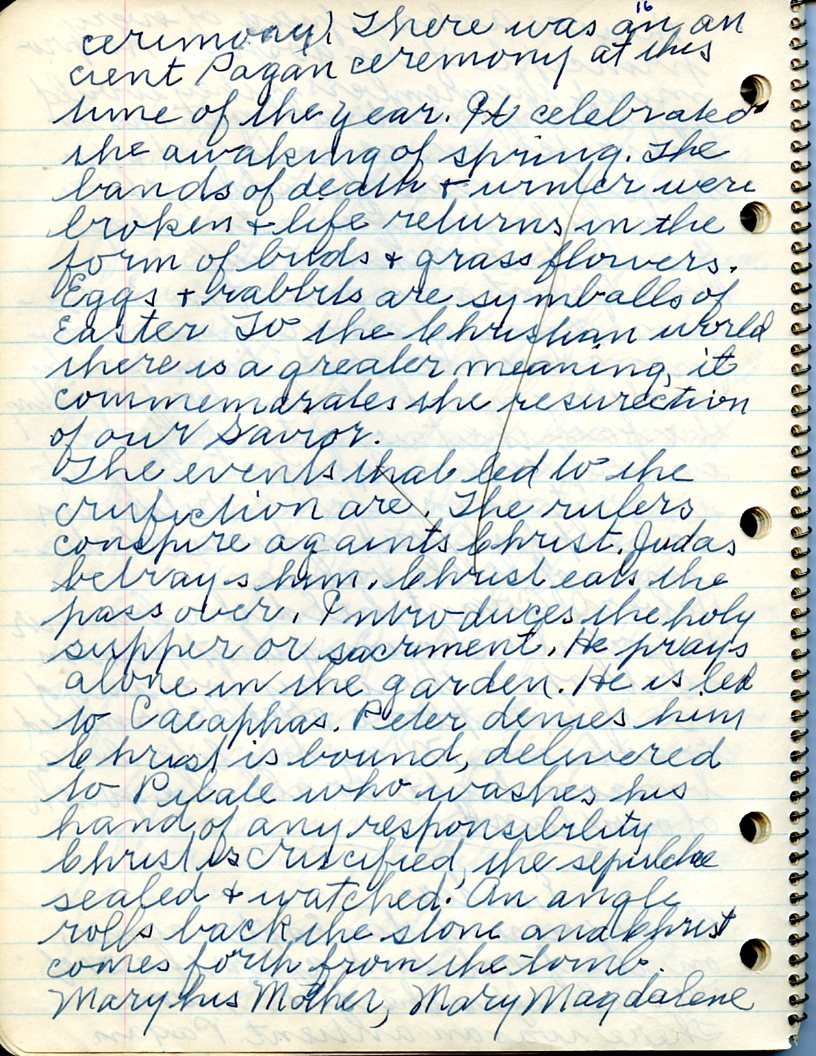 16
cerimony) There was an an
cient Pagan ceremony at this
time of the year. It celebrated
the awaking of spring. The
bands of death + winter were
broken + life returns in the
form of buds + grass flowers.
Eggs + rabbits are symballs of
Easter To the Christian world
there is a greater meaning, it
commemorates the resurection
of our Savior.
The events that led to the
crufiction are. The rulers
conspire againts Christ. Judas
betrays him. Christ eats the
pass over. Introduces the holy
supper or sacrment. He prays
alone in the garden. He is led
to Caeaphas. Peter denies him
Christ is bound, delivered
to Pilate who washes his
hand of any responsibility
Christ is crucified, the sepulchre
sealed + watched. An angle
rolls back the stone and Christ
comes forth from the tomb.
Mary his Mother, Mary Magdalene